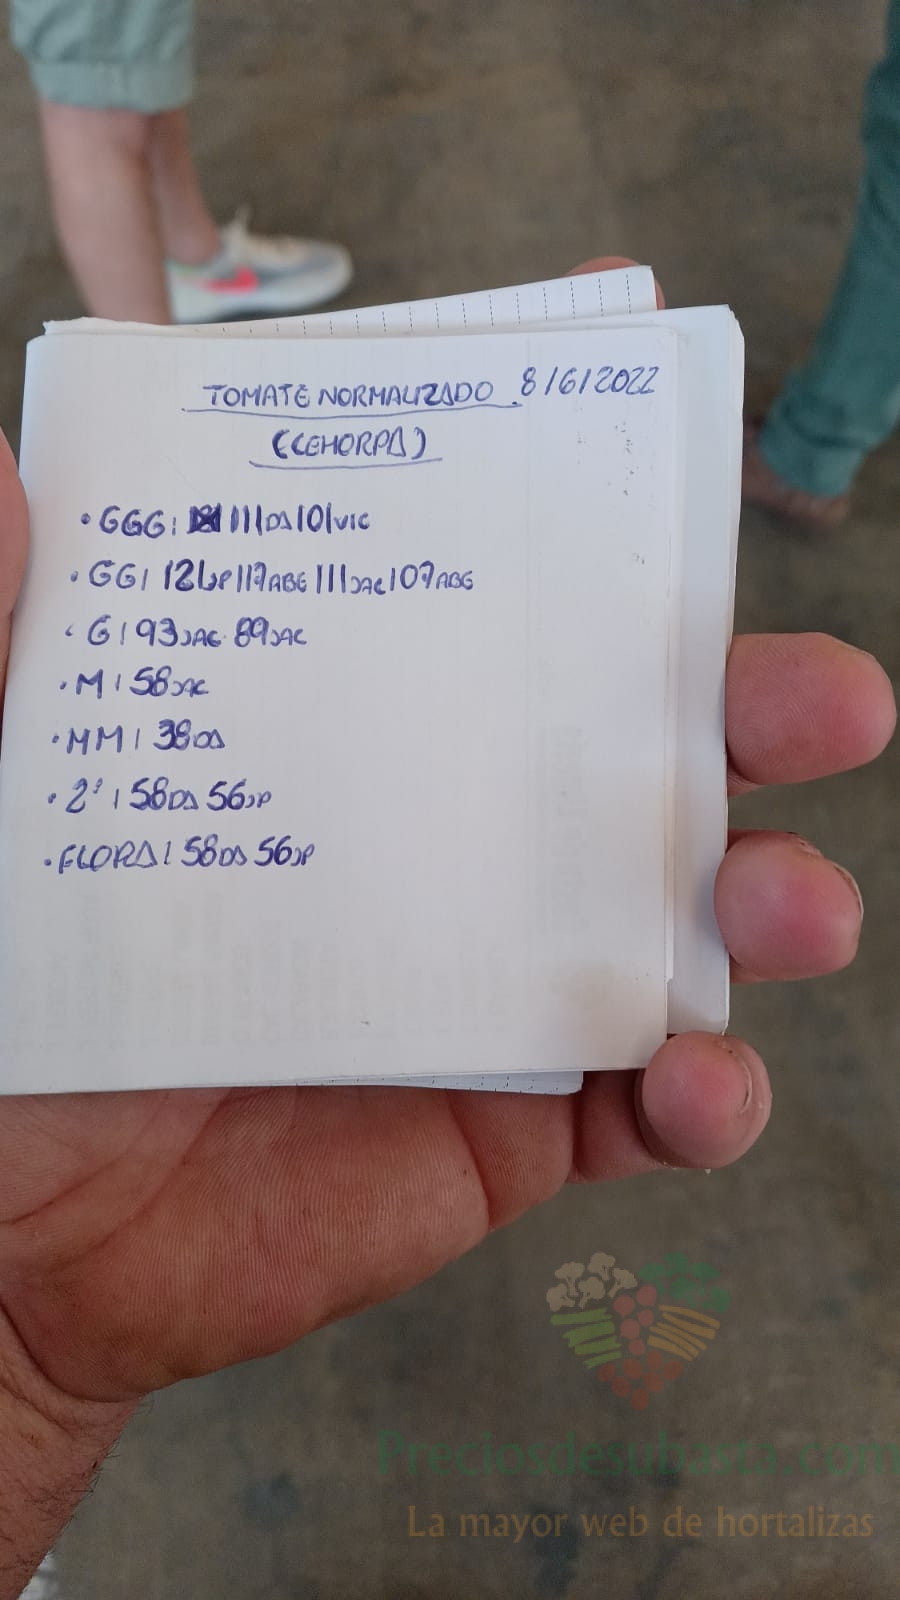 TOMATE NORMALIZADO 8/6/2022
(CEHORPA)
• GGG: 111DA 101VIC
• GG: 126JP 117ABG 111JAC 107ABG
• G: 93JAC 89JAC
• M: 58JAC
• MM: 38DA
• 2ª: 58DA 56JP
• FLORA: 58DA 56JP
Preciosdesubasta.com
La mayor web de hortalizas